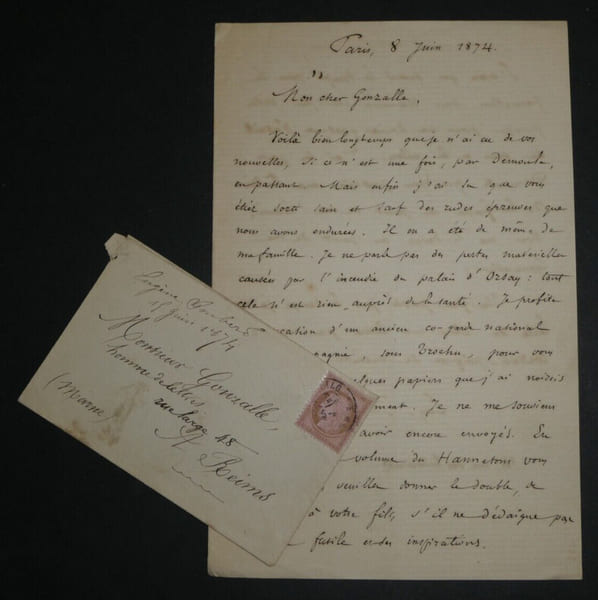 Paris, 8 Juin 1874.
Mon cher Gonzalle,
Voilà bien longtemps que je n'ai eu de vos
nouvelles, si ce n'est une fois, par
en passant. Mais enfin j'ai su que vous
étiez sorti sain et sauf des rudes épreuves que
nous avons endurées. Il en a été de même de
ma famille. Je ne parle pas des pertes matérielles
causées par l'incendie du palais d'Orsay : tout
cela n'est rien auprès de la santé. Je profite
cation d'un ancien co-garde national
pagnie, sous Trochu, pour vous
elques papiers que j'ai noircis
ment. Je ne me souviens
avoir encore envoyés. En
volume du Hanneton vous
veuillez donner le double, de
à votre fils, s'il ne dédaigne pas
futile et des inspirations.
Eugène
15 Juin 1874
Monsieur Gonzalle
homme de lettres
rue large 48
A Reims
(Marne)